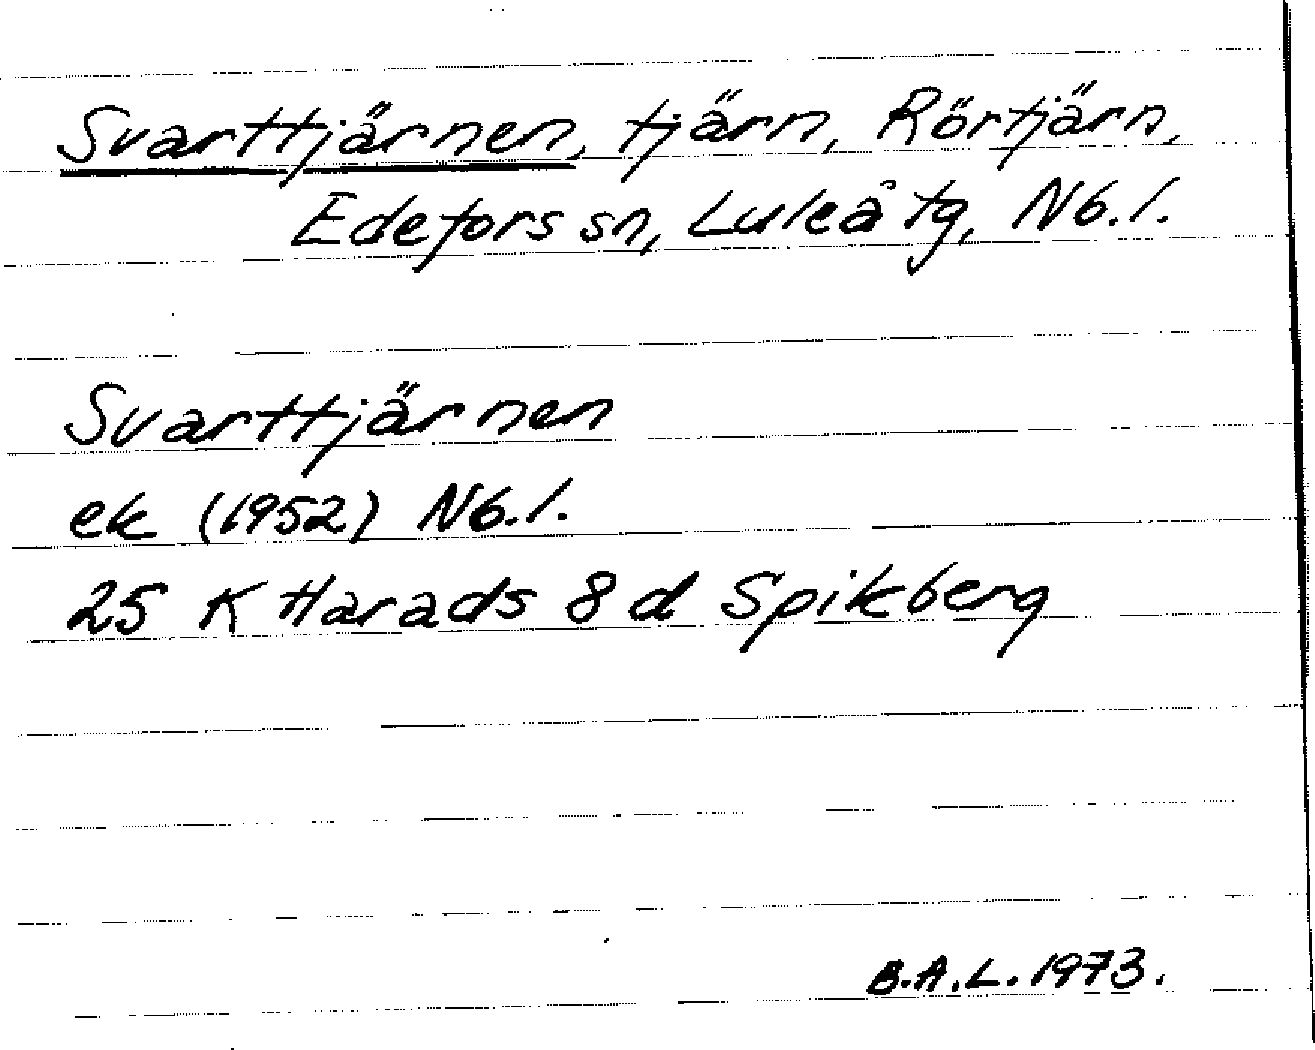 Svarttjärnen, tjärn, Rörtjärn,
Edefors sn, Luleå tg, Nb.l.
Svarttjärnen
ek (1952) Nb.l.
25 K Harads 8 d Spikberg
B.A.L. 1973.